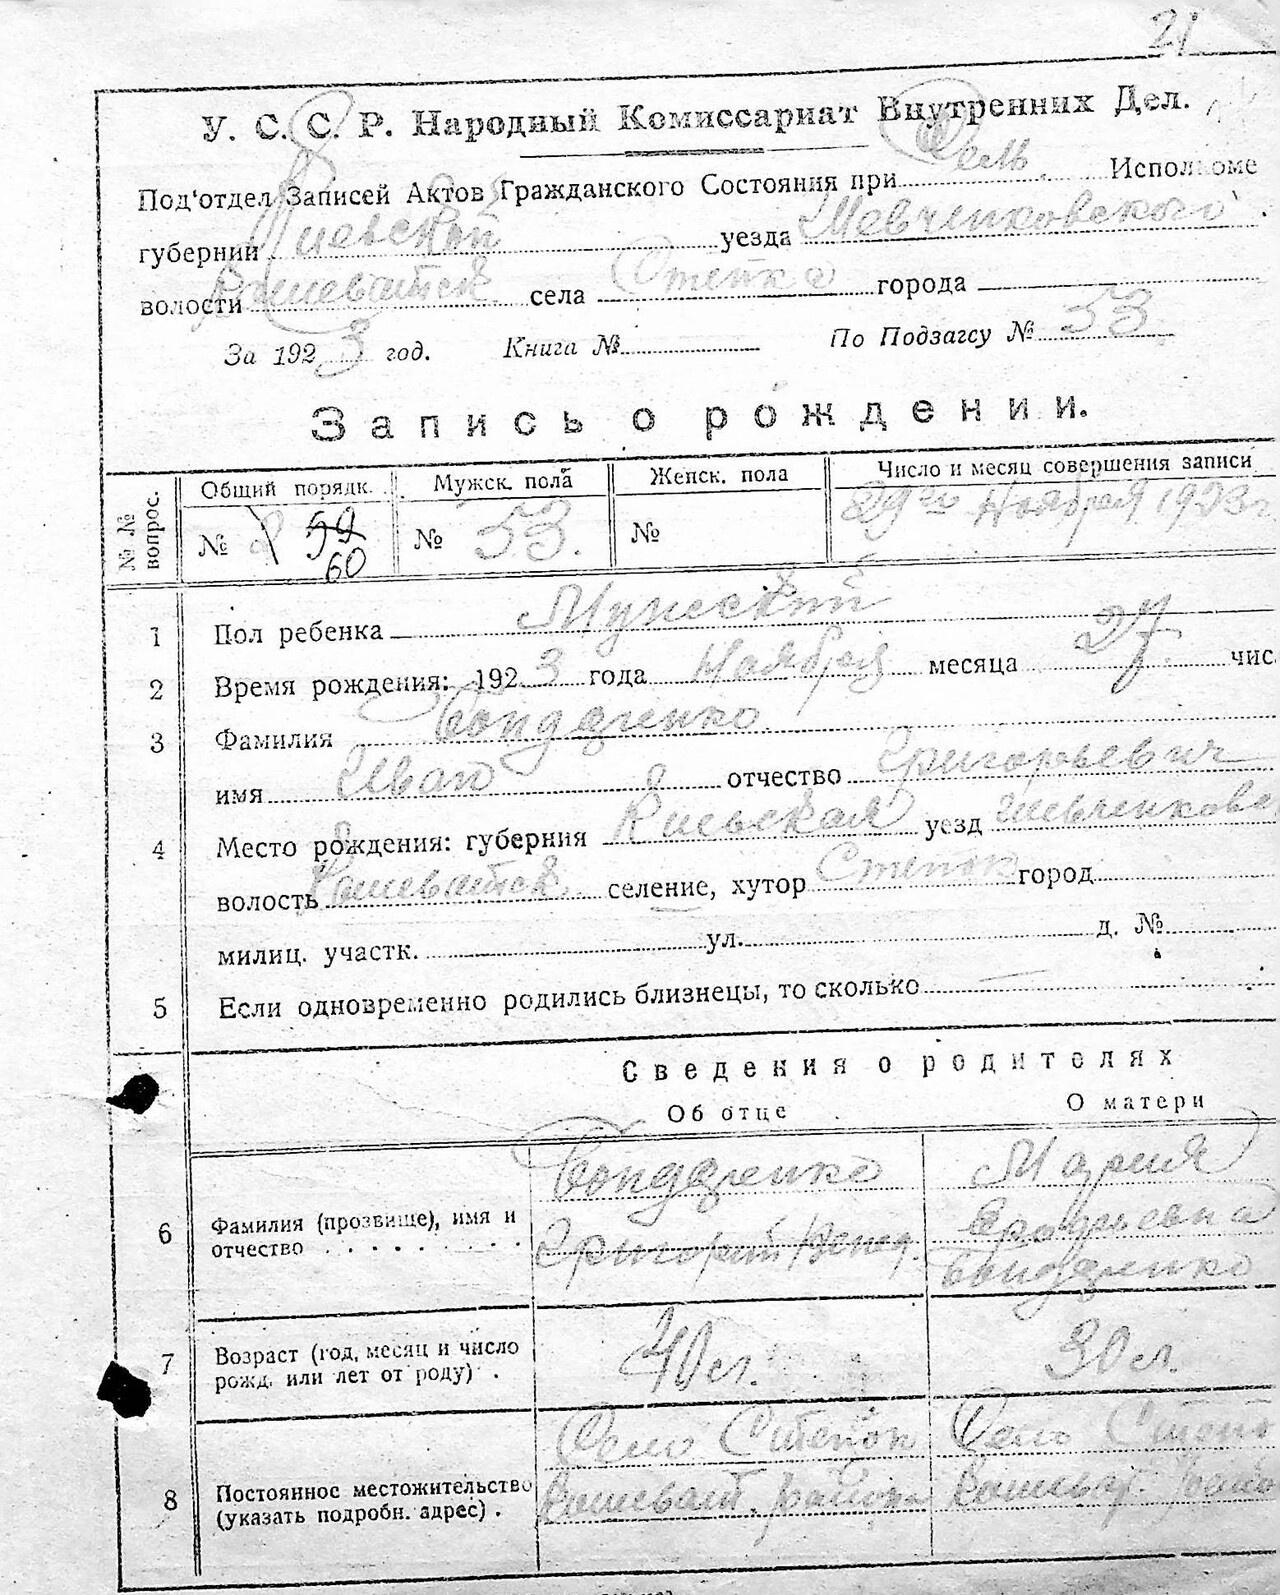 21
У. С. С. Р. Народный Комиссариат Внутренних Дел.
Под'отдел Записей Актов Гражданского Состояния при Сельв. Исполкоме
губернии Киевской уезда Шевченковского
волости села Степка города
За 1923 год. Книга № По Подзагсу № 53
Запись о рождении.
№ № вопрос. Общий порядк. Мужск. пола Женск. пола Число и месяц совершения записи
№ 59 60 № 53. № 29го Ноября 1923 г
1 Пол ребенка Мужской
2 Время рождения: 1923 года Ноября месяца 27 чис
3 Фамилия Бондаренко
имя Иван отчество Григорьевич
4 Место рождения: губерния Киевская уезд Шевченковс
волость селение, хутор Степок город
милиц. участк. ул. д. №
5 Если одновременно родились близнецы, то сколько —
Сведения о родителях
Об отце О матери
6 Фамилия (прозвище), имя и отчество
Бондаренко
Григорий
Мария
Бондаренко
7 Возраст (год, месяц и число рожд. или лет от роду).
40 л. 30 л.
8 Постоянное местожительство (указать подробн. адрес).
Село Степок Село Степо
района райо